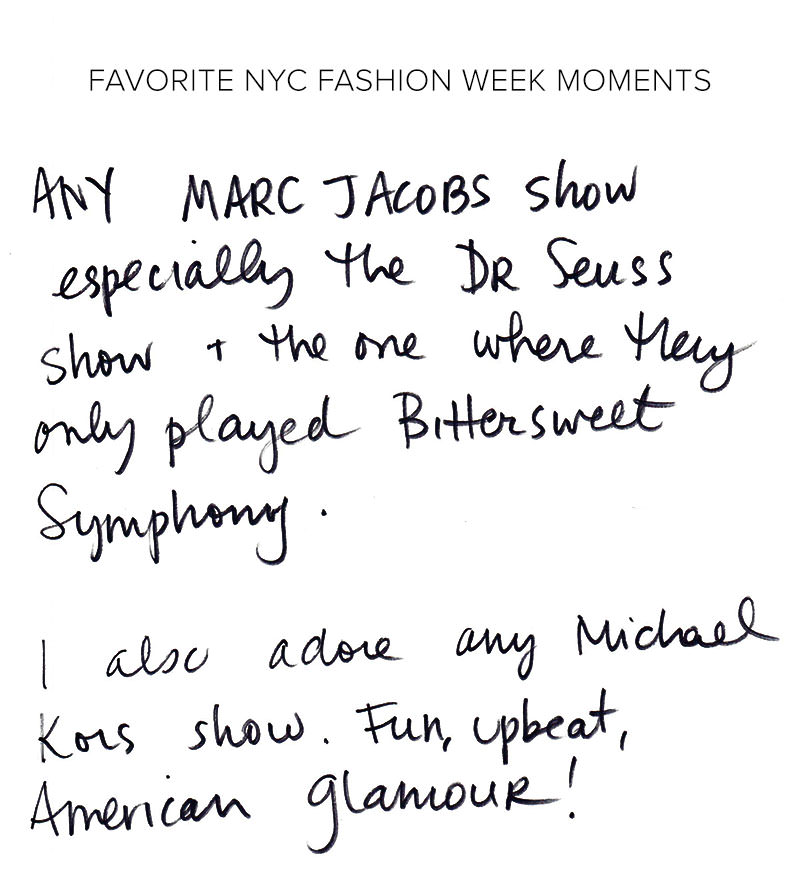 FAVORITE NYC FASHION WEEK MOMENTS
ANY MARC JACOBS show
especially the DR Seuss
show + the one where they
only played Bittersweet
Symphony.
I also adore any Michael
Kors show. Fun, upbeat,
American glamour!